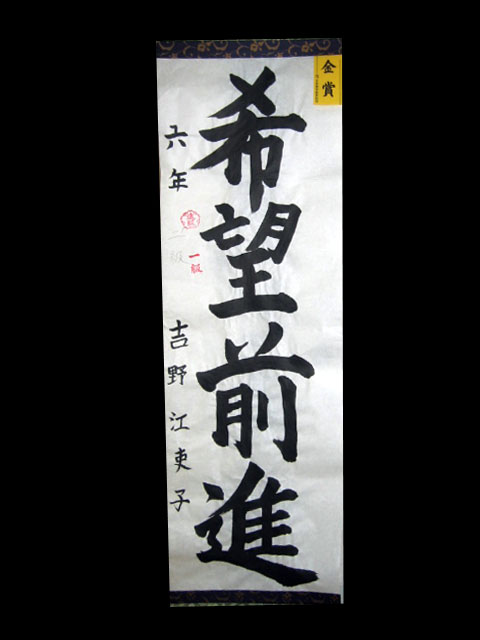 金賞
希望前進
六年
二級
一級
吉野江吏子